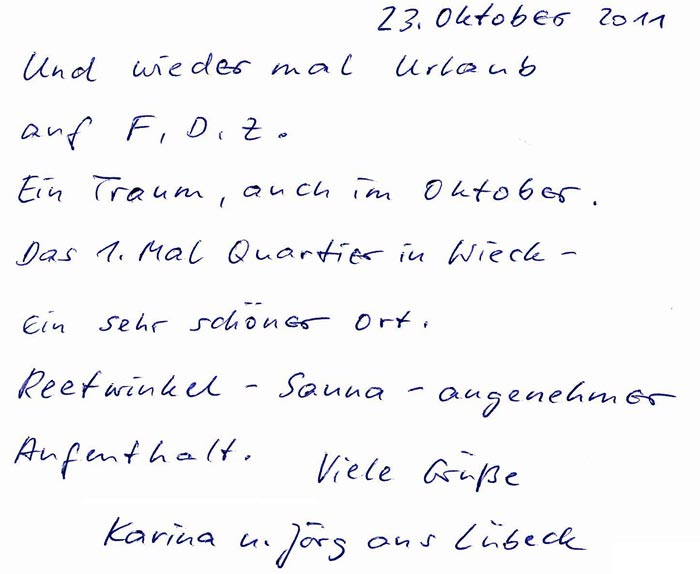 23. Oktober 2011
Und wieder mal Urlaub
auf F, D, Z.
Ein Traum, auch im Oktober.
Das 1. Mal Quartier in Wieck -
Ein sehr schöner Ort.
Reetwinkel - Sauna - angenehmer
Aufenthalt.
Viele Grüße
Karina u. Jörg aus Lübeck